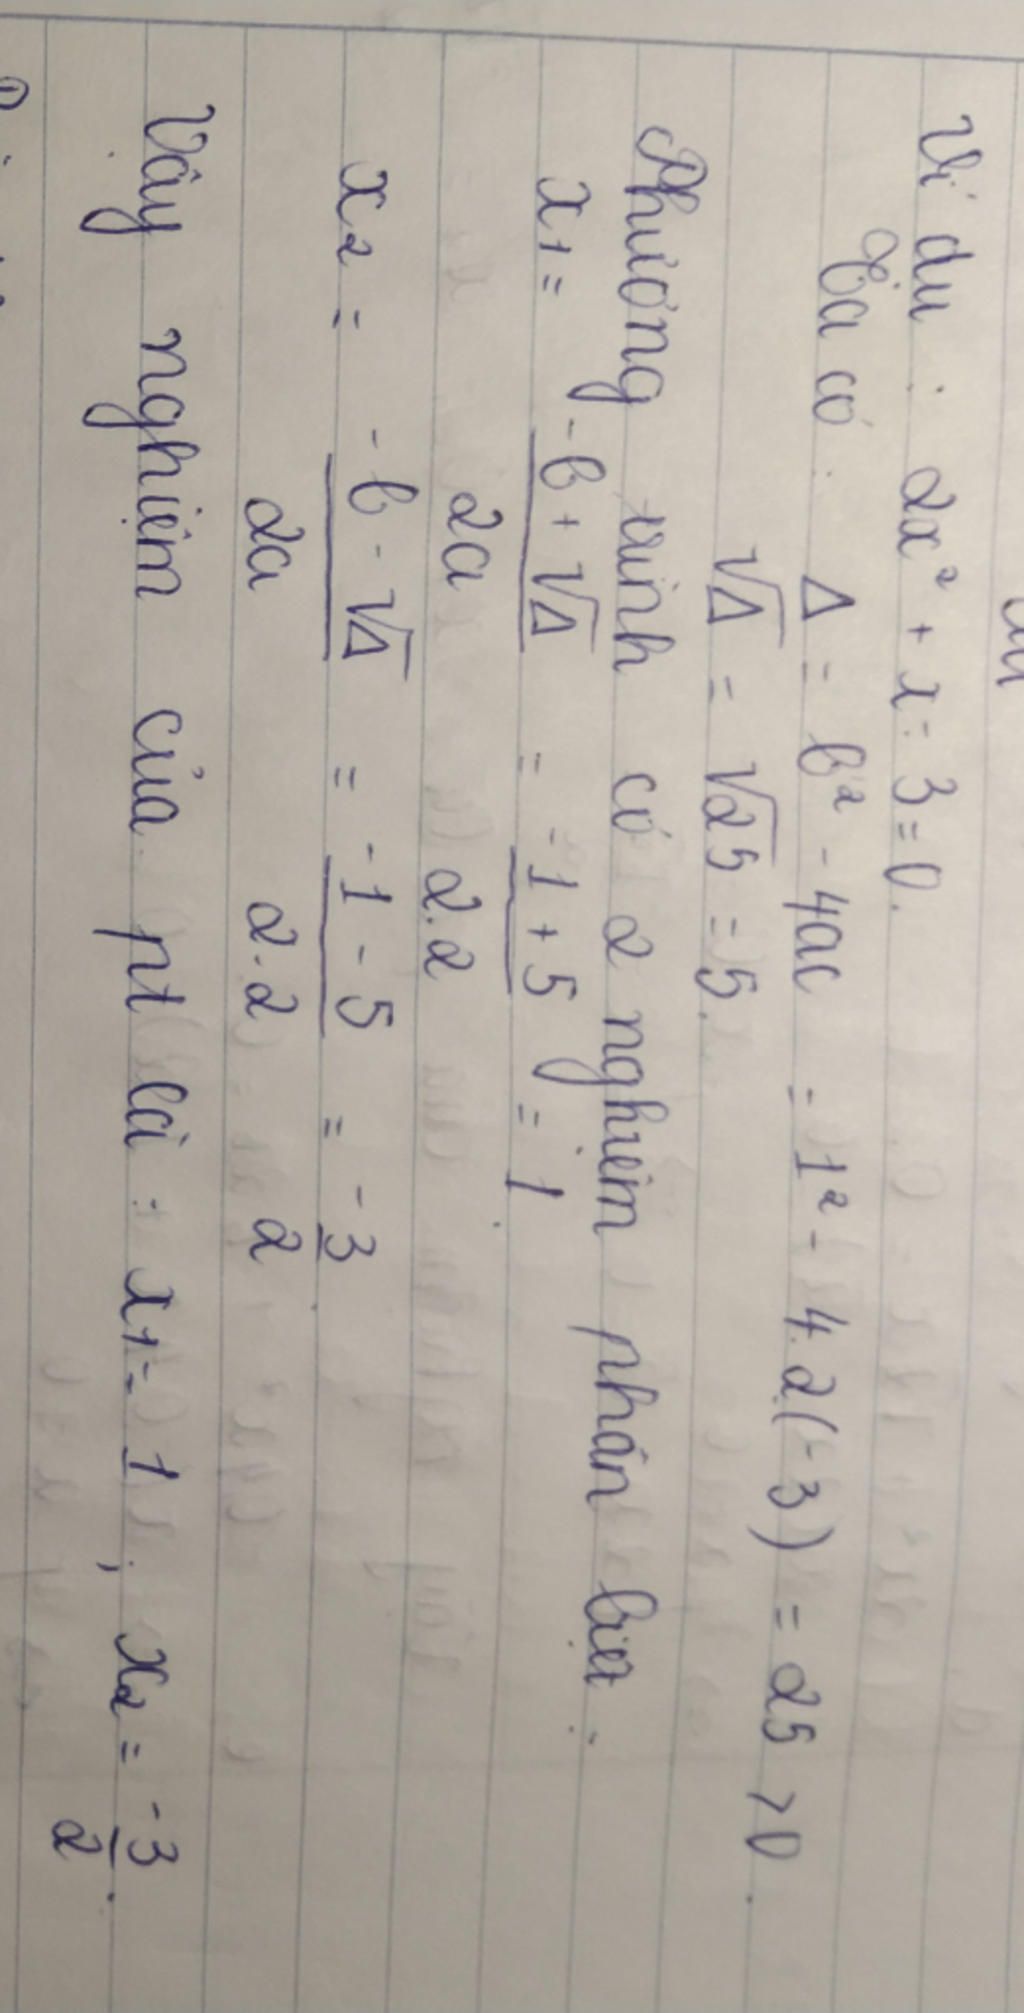 Ví dụ : 2x² + x - 3 = 0.
Ta có : Δ = b² - 4ac = 1² - 4.2(-3) = 25 > 0.
√Δ = √25 = 5.
Phương trình có 2 nghiệm phân biệt :
x₁ = (-b + √Δ)/2a = (-1 + 5)/2.2 = 1.
x₂ = (-b - √Δ)/2a = (-1 - 5)/2.2 = -3/2.
Vậy nghiệm của pt là : x₁ = 1 , x₂ = -3/2.